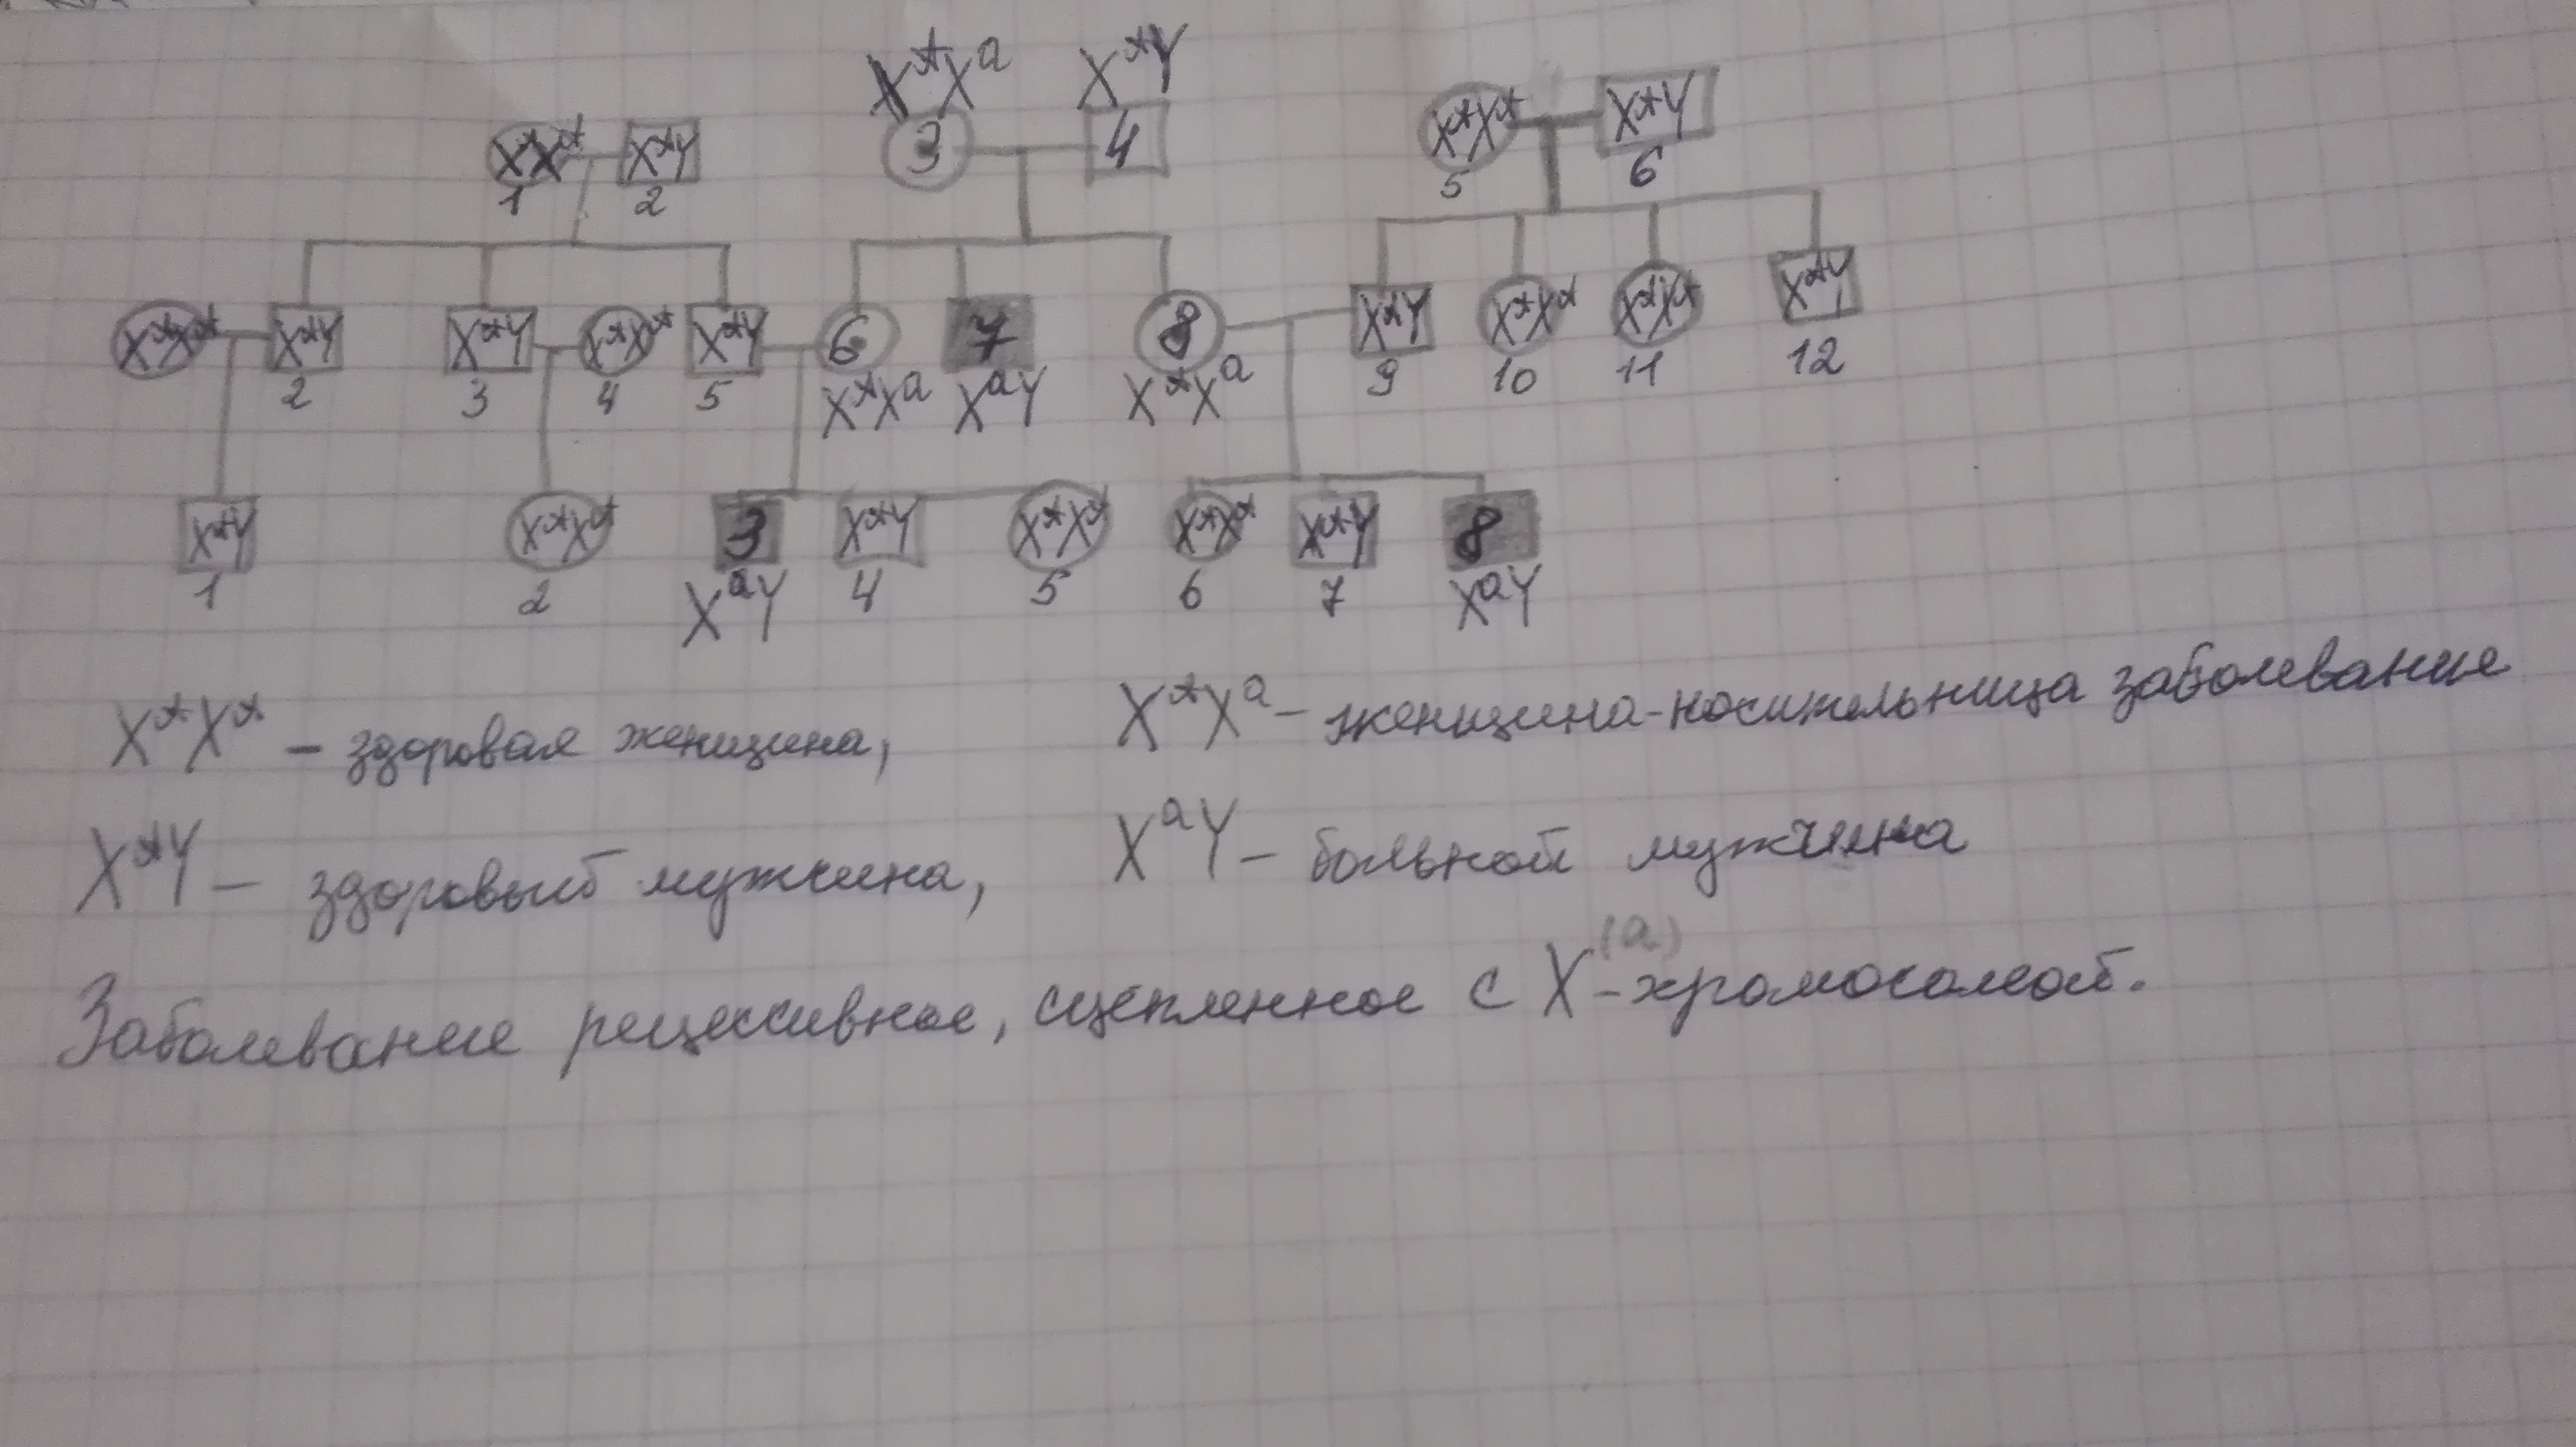 XᴬXᵃ XᴬY
XᴬXᴬ XᴬY 3 4 XᴬXᴬ XᴬY
1 2 5 6
XᴬXᴬ XᴬY XᴬY XᴬXᴬ XᴬY 6 7 8 XᴬY XᴬXᴬ XᴬXᴬ XᴬY
2 3 4 5 XᴬXᵃ XᵃY XᴬXᵃ 9 10 11 12
XᴬY XᴬXᴬ 3 XᴬY XᴬXᴬ XᴬXᴬ XᴬY 8
1 2 XᵃY 4 5 6 7 XᵃY
XᴬXᴬ – здоровая женщина, XᴬXᵃ – женщина-носительница заболевание
XᴬY – здоровый мужчина, XᵃY – больной мужчина
Заболевание рецессивное, сцепленное с X⁽ᵃ⁾-хромосомой.